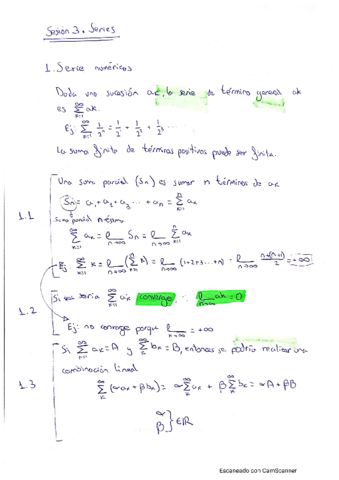 Sesión 3. Series
1. Serie numéricos
Dada una sucesión ak, la serie de término general ak
es ∑_{k=1}^{∞} ak.
Ej: ∑_{k=1}^{∞} = + + + ...
La suma finita de términos positivos puede ser finita.
Una suma parcial (Sn) es sumar n términos de ak
Sn = a₁ + a₂ + a₃ ... + an = ∑_{k=1}^{n} ak
1.1
Suma parcial n términos
∑_{k=1}^{∞} ak = l_{n→∞} Sn = l_{n→∞} ∑_{k=1}^{n} ak
Ej ∑_{k=1}^{∞} k = l_{n→∞} (∑_{k=1}^{n} k) = l_{n→∞} (1+2+3...+n) = l_{n→∞} n(n+1)/2 = +∞
1.2
Si una serie ∑_{k=1}^{∞} ak converge l ak = 0
Ej: no converge porque l = +∞
1.3
Si ∑ ak = A y ∑ bk = B, entonces se podría realizar una
combinación lineal
∑ (αak + βbk) = α∑ ak + β∑ bk = αA + βB
α
β } ∈ ℝ
Escaneado con CamScanner